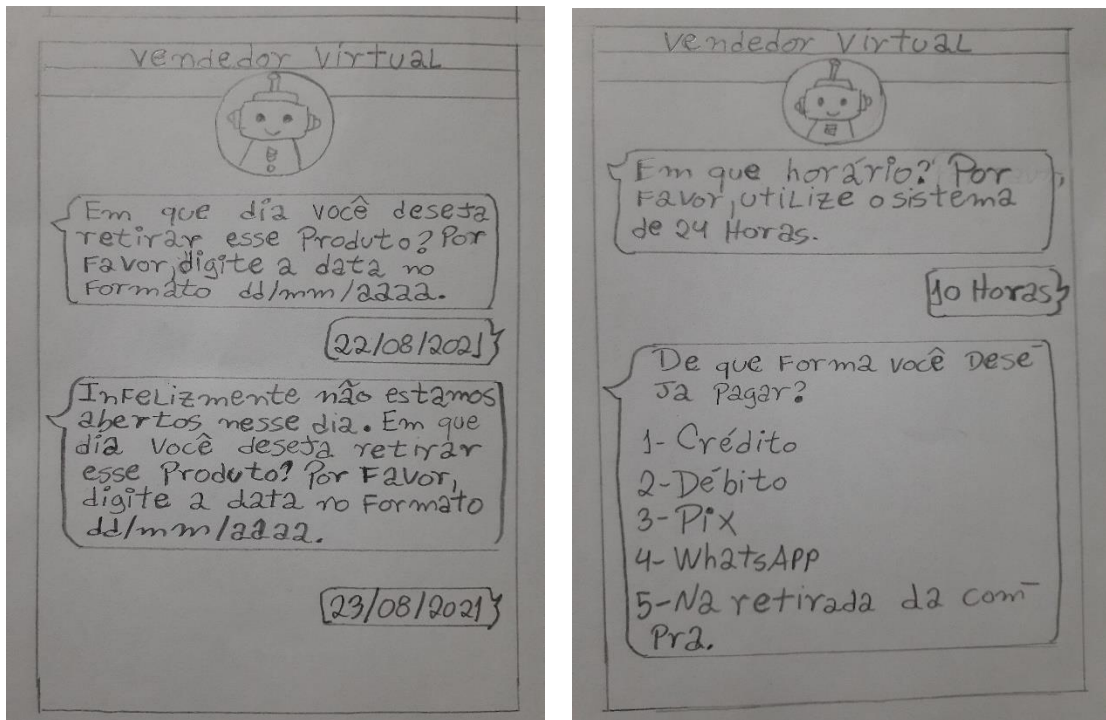 Vendedor Virtual
Em que día você deseja
retirar esse Produto? Por
Favor, digite a data no
Formato dd/mm/aaaa.
22/08/2021
Infelizmente não estamos
abertos nesse dia. Em que
día Você deseja retirar
esse Produto? Por Favor,
digite a data no Formato
dd/mm/aaaa.
23/08/2021
Vendedor Virtual
Em que horário? Por
Favor, utilize o sistema
de 24 Horas.
10 Horas
De que Forma você Dese-
ja Pagar?
1- Crédito
2- Débito
3- Pix
4- WhatsApp
5- Na retirada da com-
Pra.